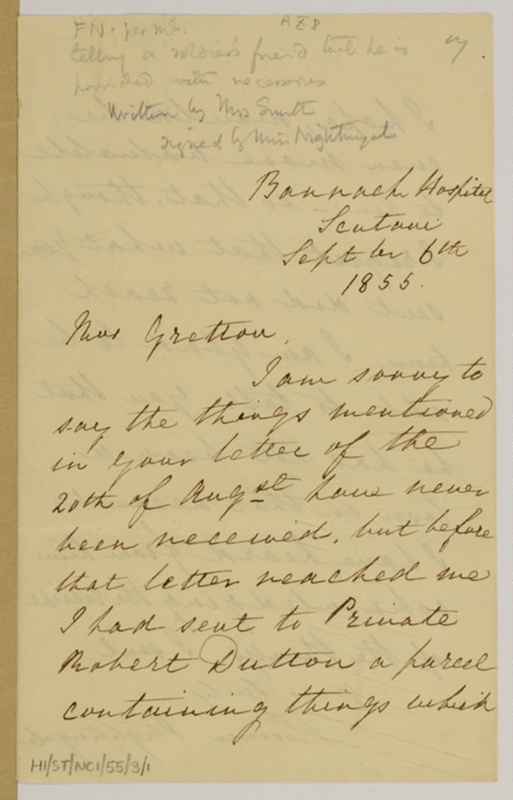 FN. per
AZ8
telling a soldier's friend that he is
provided with necessaries
Written by Mrs Smith
signed by Miss Nightingale
Barrack Hospital
Scutari
Septbr 6th
1855.
Mrs Gretton,
I am sorry to
say the things mentioned
in your letter of the
20th of Augst have never
been received, but before
that letter reached me
I had sent to Private
Robert Dutton a parcel
containing things which
H1/ST/NC1/55/3/1